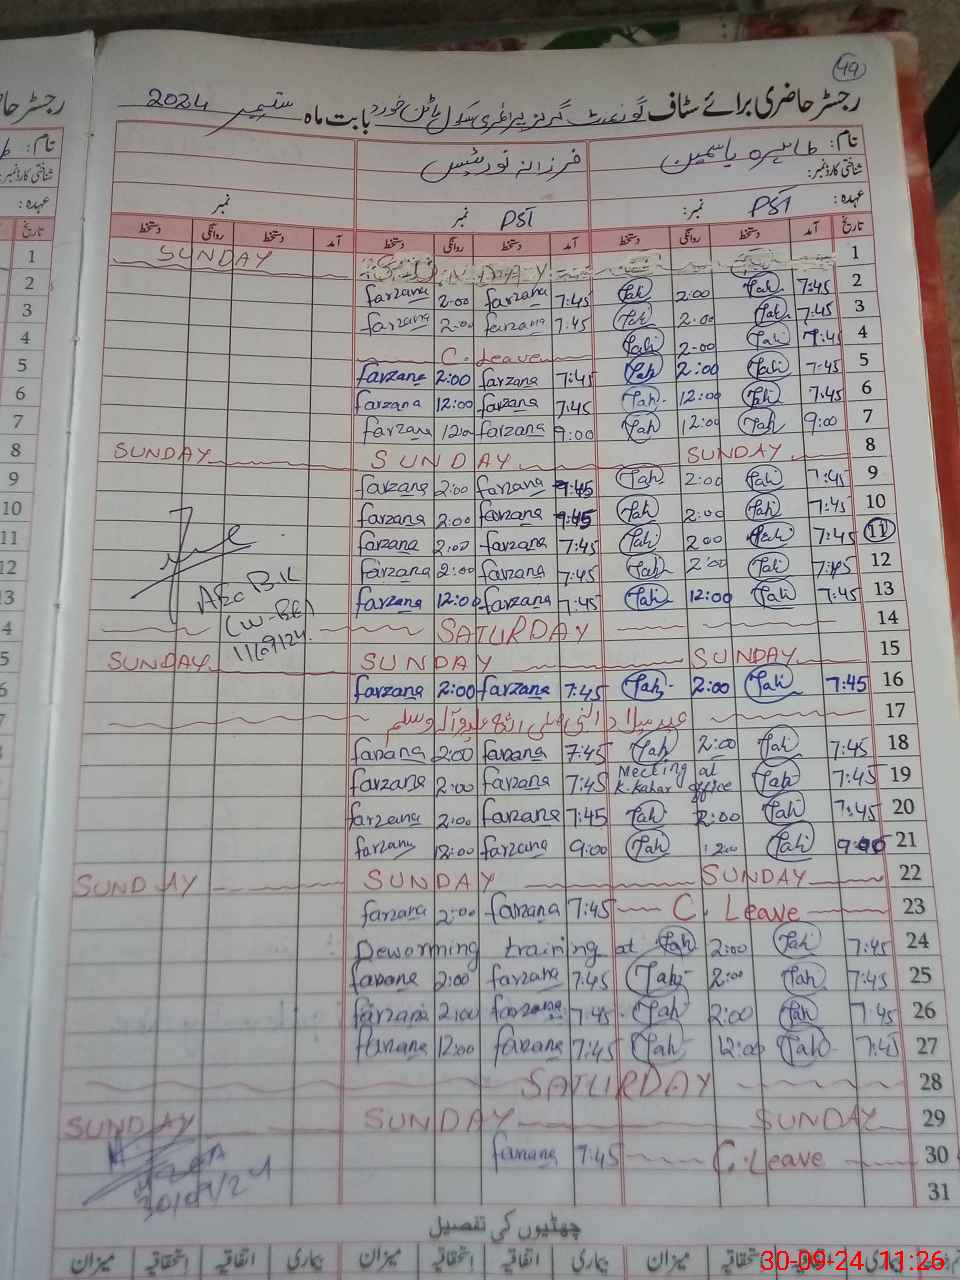 49
رجسٹر حاضری برائے سٹاف گورنمنٹ گرلز پرائمری سکول بابت ماہ ستمبر 2024
نام: طاہرہ یاسمین فرزانہ نورشیس
شناختی کارڈ نمبر:
عہدہ: PST نمبر: PST نمبر نمبر
تاریخ آمد دستخط روانگی دستخط آمد دستخط روانگی دستخط آمد دستخط روانگی دستخط
1 SUNDAY SUNDAY
2 7:45 Tah 2:00 Tah 7:45 farzana 2:00 farzana
3 7:45 Tah 2:00 Tah 7:45 farzana 2:00 farzana
4 7:45 Tah 2:00 Tah C. Leave
5 7:45 Tah 2:00 Tah 7:45 farzana 2:00 farzana
6 7:45 Tah 12:00 Tah 7:45 farzana 12:00 farzana
7 9:00 Tah 12:00 Tah 9:00 farzana 12:00 farzana
8 SUNDAY SUNDAY SUNDAY
9 7:45 Tah 2:00 Tah 7:45 farzana 2:00 farzana
10 7:45 Tah 2:00 Tah 7:45 farzana 2:00 farzana
11 7:45 Tah 2:00 Tah 7:45 farzana 2:00 farzana
12 7:45 Tah 2:00 Tah 7:45 farzana 2:00 farzana
13 7:45 Tah 12:00 Tah 7:45 farzana 12:00 farzana
AEO BK
(W-BEA
11/09/24.
14 SATURDAY
15 SUNDAY SUNDAY SUNDAY
16 7:45 Tah 2:00 Tah 7:45 farzana 2:00 farzana
17 عید میلاد النبی صلی اللہ علیہ وآلہ وسلم
18 7:45 Tah 2:00 Tah 7:45 farzana 2:00 farzana
19 7:45 Tah Meeting at K.Kahar office 7:45 farzana 2:00 farzana
20 7:45 Tah 2:00 Tah 7:45 farzana 2:00 farzana
21 9:00 Tah 12:00 Tah 9:00 farzana 12:00 farzana
22 SUNDAY SUNDAY SUNDAY
23 C. Leave 7:45 farzana 2:00 farzana
24 7:45 Tah 2:00 Tah Deworming training at
25 7:45 Tah 2:00 Tah 7:45 farzana 2:00 farzana
26 7:45 Tah 2:00 Tah 7:45 farzana 2:00 farzana
27 7:45 Tah 12:00 Tah 7:45 farzana 12:00 farzana
28 SATURDAY
29 SUNDAY SUNDAY SUNDAY
30 C. Leave 7:45 farzana
30/09/24
31
چھٹیوں کی تفصیل
بیماری اتفاقیہ استحقاقیہ میزان بیماری اتفاقیہ استحقاقیہ میزان
30-09-24 11:26